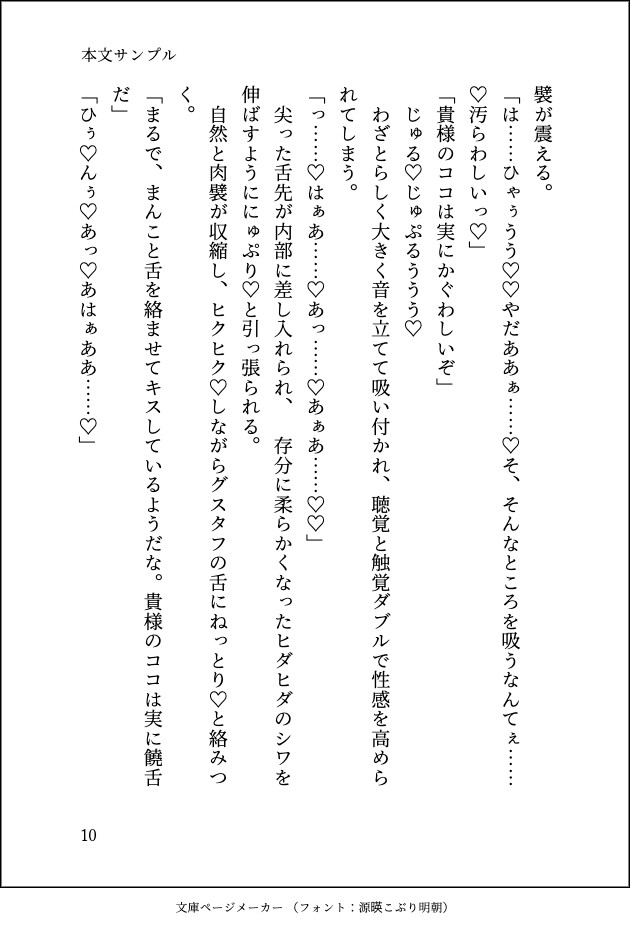 本文サンプル
襞が震える。
「は……ひゃぅうう♡♡やだああぁ……♡そ、そんなところを吸うなんてぇ……
♡汚らわしいっ♡」
「貴様のココは実にかぐわしいぞ」
じゅる♡じゅぷるううう♡
わざとらしく大きく音を立てて吸い付かれ、聴覚と触覚ダブルで性感を高めら
れてしまう。
「っ……♡はぁあ……♡あっ……♡あぁあ……♡♡」
尖った舌先が内部に差し入れられ、　存分に柔らかくなったヒダヒダのシワを
伸ばすようににゅぷり♡と引っ張られる。
自然と肉襞が収縮し、ヒクヒク♡しながらグスタフの舌にねっとり♡と絡みつ
く。
「まるで、まんこと舌を絡ませてキスしているようだな。貴様のココは実に饒舌
だ」
「ひぅ♡んぅ♡あっ♡あはぁああ……♡」
10
文庫ページメーカー（フォント：源暎こぶり明朝）